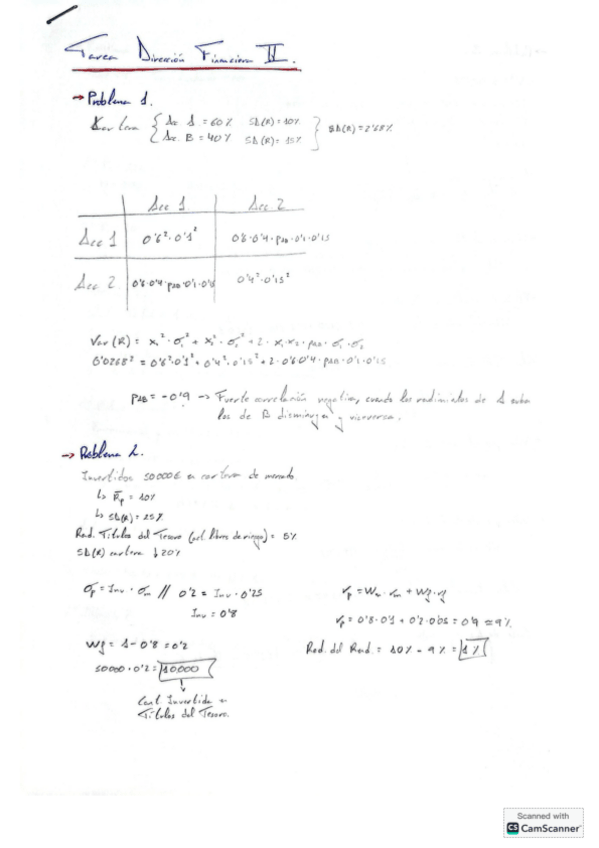 Tarea Dirección Financiera II.
→ Problema 1.
Cartera { Acc A = 60% SD(R) = 10%
Acc B = 40% SD(R) = 15% } SD(R) = 2'68%
Acc 1 Acc 2
Acc 1 0'6²·0'1² 0'6·0'4·ρAB·0'1·0'15
Acc 2 0'6·0'4·ρAB·0'1·0'15 0'4²·0'15²
Var (R) = x₁²·σ₁² + x₂²·σ₂² + 2·x₁·x₂·ρAB·σ₁·σ₂
0'0268² = 0'6²·0'1² + 0'4²·0'15² + 2·0'6·0'4·ρAB·0'1·0'15
ρAB = -0'9 → Fuerte correlación negativa, cuando los redimientos de A suba
los de B disminuyen y viceversa.
→ Problema 2.
Invertidos 50000€ en cartera de mercado
↳ R̄p = 10%
↳ SD(R) = 25%
Red. Títulos del Tesoro (act. libres de riesgo) = 5%
SD(R) cartera ↓ 20%
σp = Inv · σm // 0'2 = Inv · 0'25
Inv = 0'8
Wf = 1 - 0'8 = 0'2
50000 · 0'2 = 10.000
↓
Cant. Invertida en
Títulos del Tesoro.
rp = Wm · rm + Wf · rf
rp = 0'8·0'1 + 0'2·0'05 = 0'9 = 9%
Red. del Rend. = 10% - 9% = 1%
Scanned with
CS CamScanner